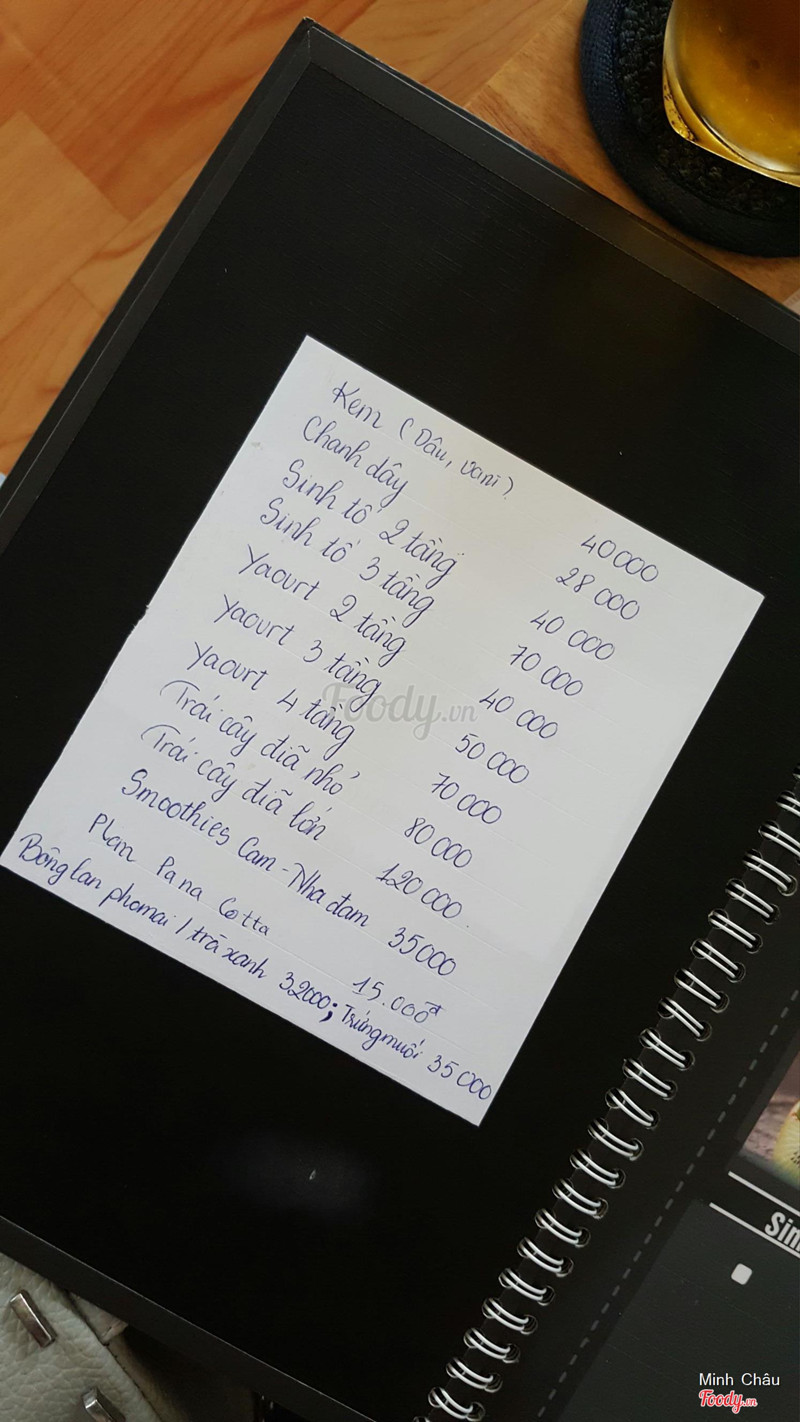 Kem (Dâu, vani) 40000
Chanh dây 28 000
Sinh tố 2 tầng 40 000
Sinh tố 3 tầng 70 000
Yaourt 2 tầng 40 000
Yaourt 3 tầng 50 000
Yaourt 4 tầng 70 000
Trái cây điã nhỏ 80 000
Trái cây điã lớn 120 000.
Smoothies Cam - Nha đam 35000
Plan Pa na Cotta 15.000đ
Bông lan phomai / trà xanh 32000; Trứng muối 35 000
Foody.vn
Sin
Minh Châu
Foody.vn